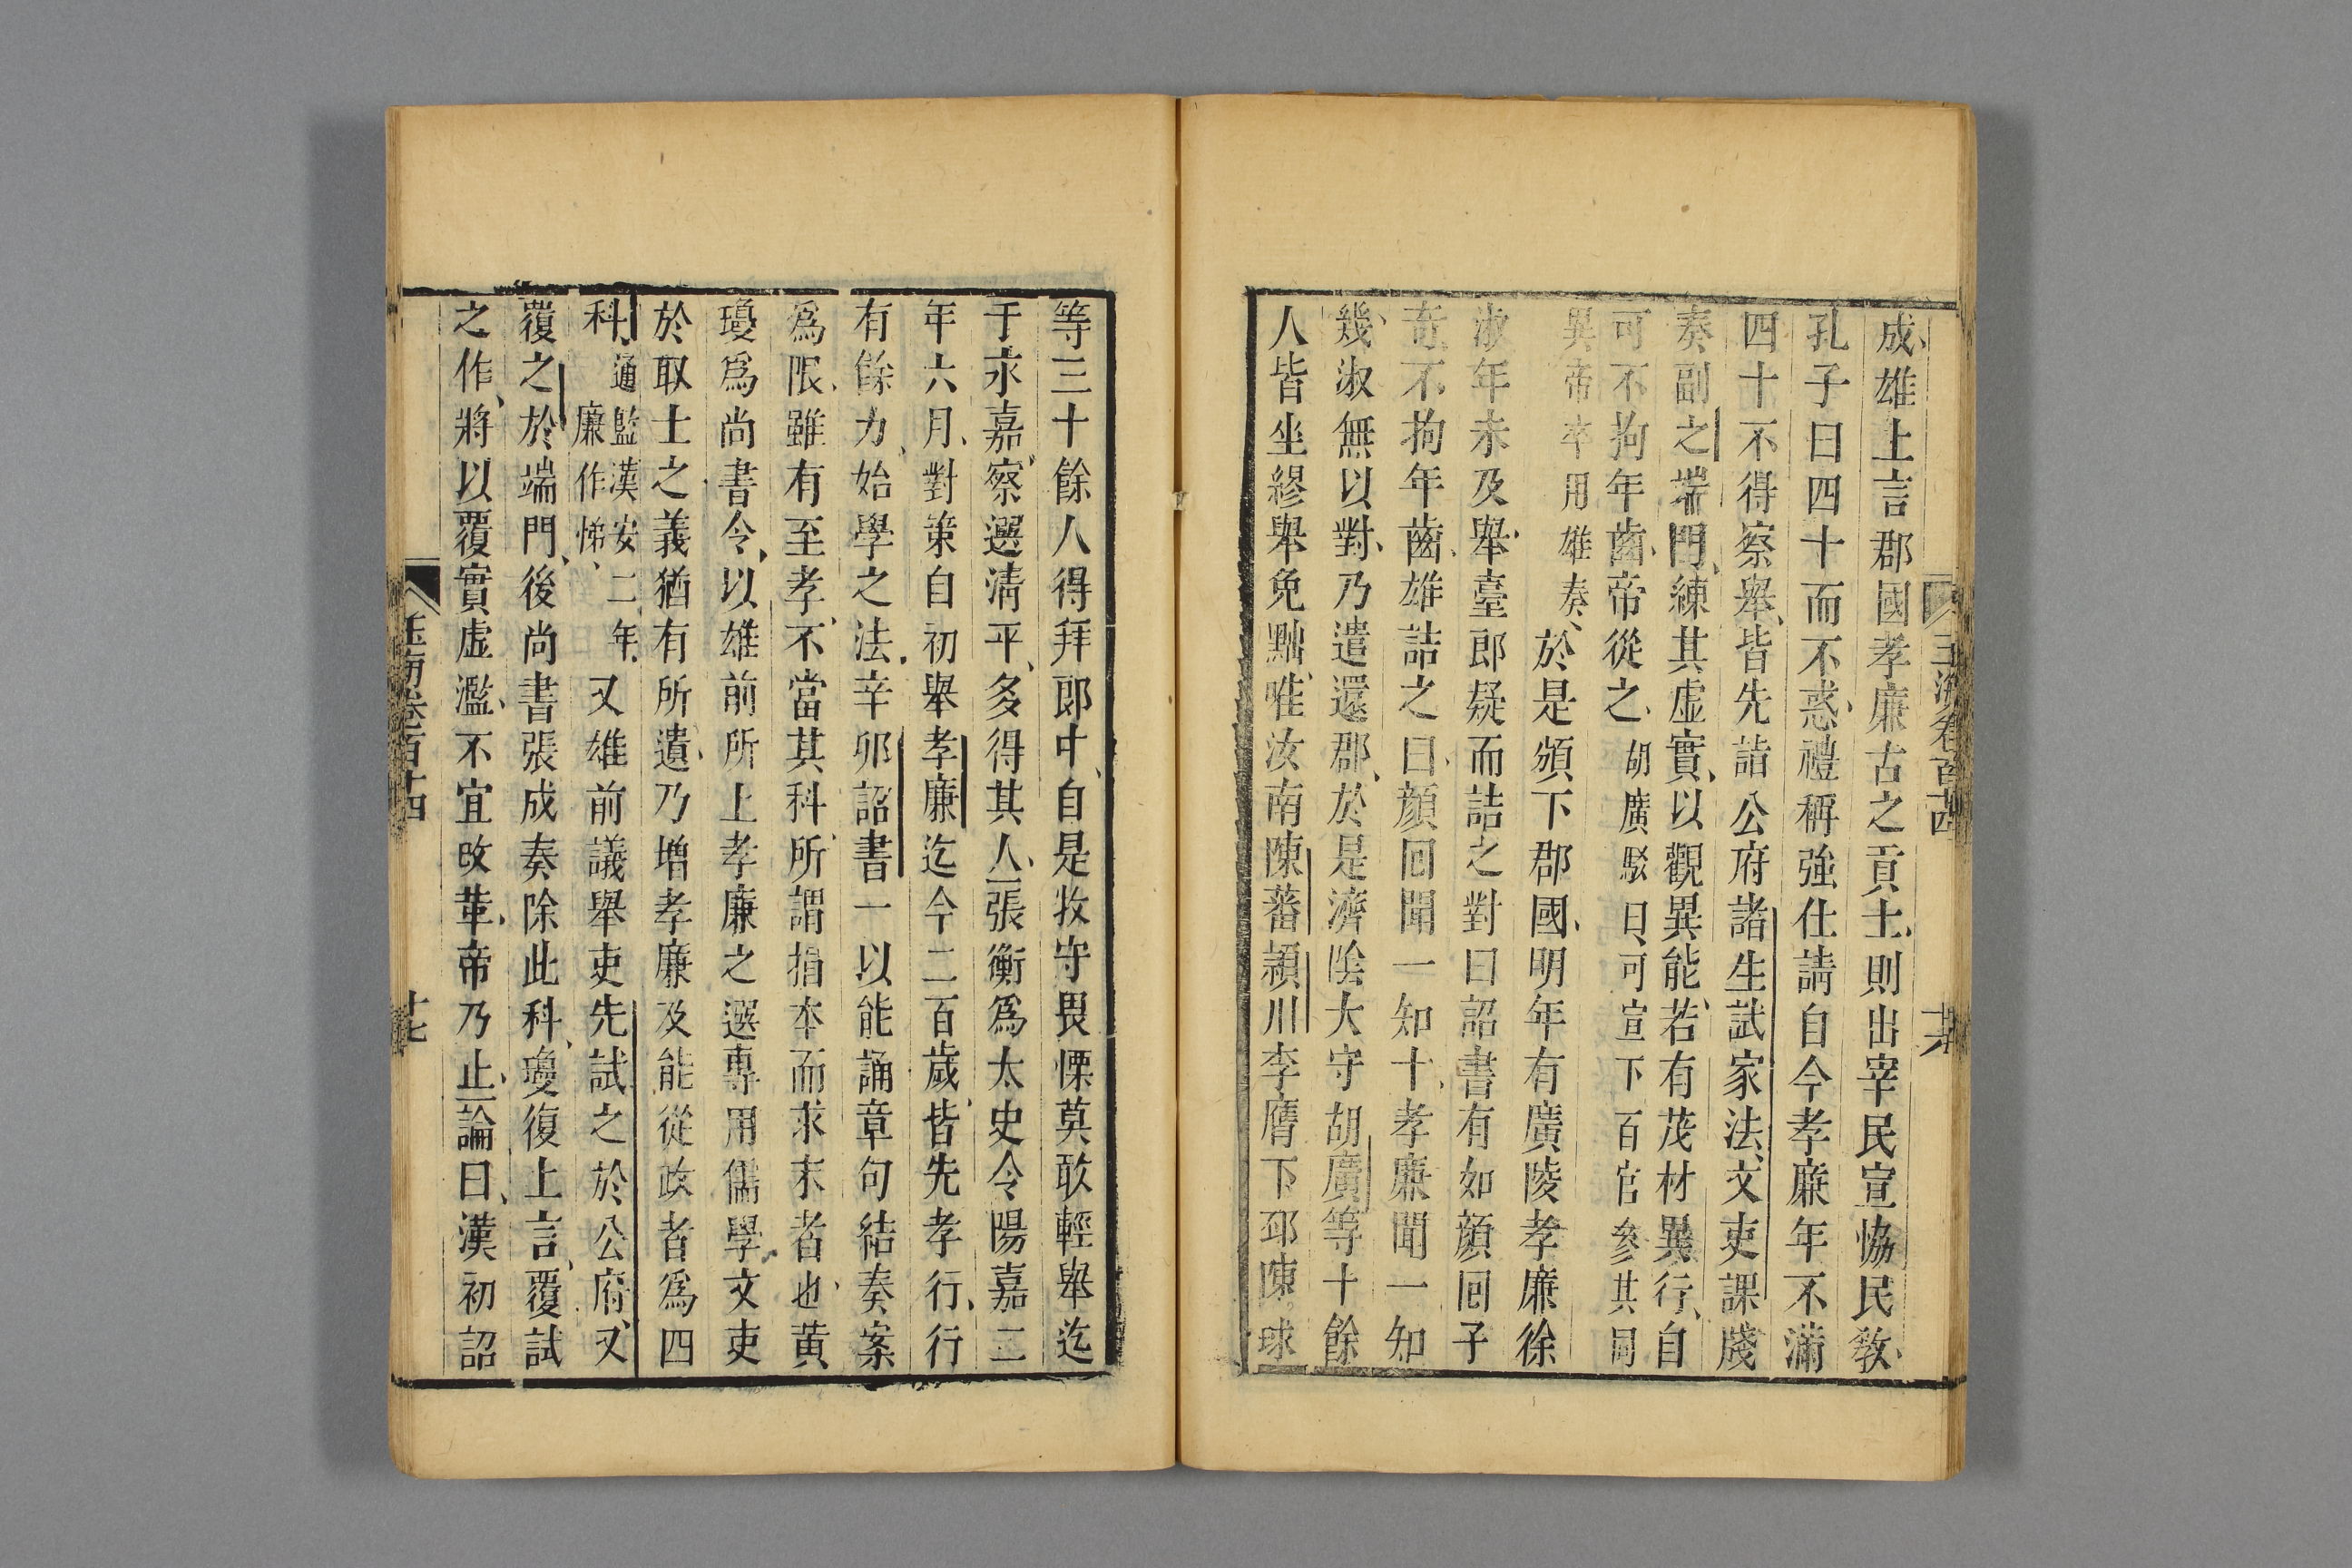 玉海卷百十四
十六
成雄上言郡國孝廉古之貢士則出宰民宣恊民敎
孔子曰四十而不惑禮稱強仕請自今孝廉年不滿
四十不得察舉皆先詣公府諸生試家法文吏課牋
奏副之端門練其虛實以觀異能若有茂材異行自
可不拘年齒帝從之胡廣駁曰可宣下百官參其同
異帝卒用雄奏於是頒下郡國明年有廣陵孝廉徐
淑年未及舉臺郎疑而詰之對曰詔書有如顏回子
竒不拘年齒雄詰之曰顏回聞一知十孝廉聞一知
幾淑無以對乃遣還郡於是濟陰大守胡廣等十餘
人皆坐繆舉免黜唯汝南陳蕃潁川李膺下邳陳球
等三十餘人得拜郎中自是牧守畏慄莫敢輕舉迄
于永嘉察選淸平多得其人張衡爲太史令陽嘉二
年六月對策自初舉孝廉迄今二百歲皆先孝行行
有餘力始學之法辛卯詔書一以能誦章句結奏案
爲限雖有至孝不當其科所謂捐本而求末者也黄
瓊爲尚書令以雄前所上孝廉之選專用儒學文吏
於取士之義猶有所遺乃增孝廉及能從政者爲四
科通監漢安二年廉作悌又雄前議舉吏先試之於公府又
覆之於端門後尚書張成奏除此科瓊復上言覆試
之作將以覆實虛濫不宜攺革帝乃止論曰漢初詔
玉海卷百十四
十七